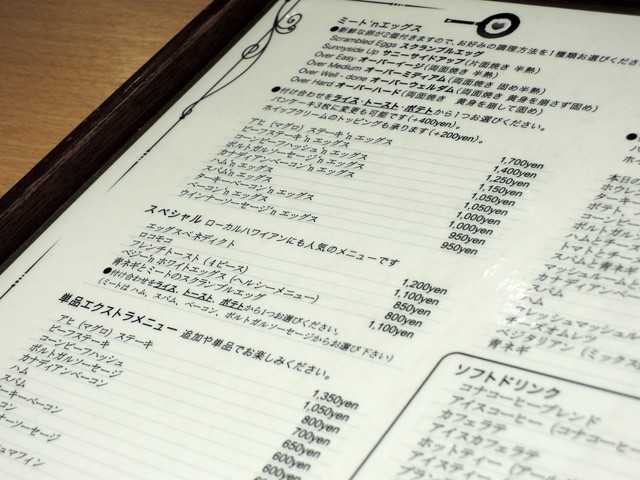 ミート'nエッグス
●新鮮な卵が2個付きますので、お好みの調理方法を1種類お選びくださ
Scrambled Eggs スクランブルエッグ
Sunnyside Up サニーサイドアップ(片面焼き 半熟)
Over Easy オーバーイージ(両面焼き 半熟)
Over Medium オーバーミディアム(両面焼き 固め半熟)
Over Well - done オーバーウェルダム(両面焼き 黄身を崩さず固め)
Over Hard オーバーハード(両面焼き 黄身を崩して固め)
●付け合わせをライス・トースト・ポテトから1つお選びください。
パンケーキ3枚に変更も可能です(+400yen)。
ホイップクリームのトッピングも承ります(+200yen)。
アヒ(マグロ)ステーキ'nエッグス 1,700yen
ビーフステーキ'nエッグス 1,400yen
コーンビーフハッシュ'nエッグス 1,250yen
ポルトガルソーセージ'nエッグス 1,150yen
カナディアンベーコン'nエッグス 1,050yen
ハム'nエッグス 1,050yen
スパム'nエッグス 1,000yen
ターキーベーコン'nエッグス 1,000yen
ベーコン'nエッグス 950yen
ウインナーソーセージ'nエッグス 950yen
スペシャル ローカルハワイアンにも人気のメニューです
エッグスベネディクト 1,200yen
ロコモコ 1,100yen
フレンチトースト(4ピース) 850yen
ベジー'nホワイトエッグス(ヘルシーメニュー) 800yen
青ネギとミートのスクランブルエッグ 1,100yen
●付け合わせをライス、トースト、ポテトから1つお選びください。
(ミートは ハム、スパム、ベーコン、ポルトガルソーセージからお選び下さい)
単品エクストラメニュー 追加や単品でお楽しみください。
アヒ(マグロ)ステーキ 1,350yen
ビーフステーキ 1,050yen
コーンビーフハッシュ 800yen
ポルトガルソーセージ 700yen
カナディアンベーコン 650yen
ハム 600yen
スパム 600yen
ーキーベーコン
コン
ナーソーセージ
ュマフィン
本日の
ホウレ
ターキ
ポテト
コーン
ポルト
ハムと
トマト
チーズ
マッシュ
カナディアン
スパム
ハム
レッシュマッシュル
ーズオムレツ
ベジタリアン(ミックス
青ネギ
ソフトドリンク
コナコーヒーブレンド
アイスコーヒー(コナコーヒー
カフェラテ
アイスカフェラテ
ホットティー(アールグ
アイスティー